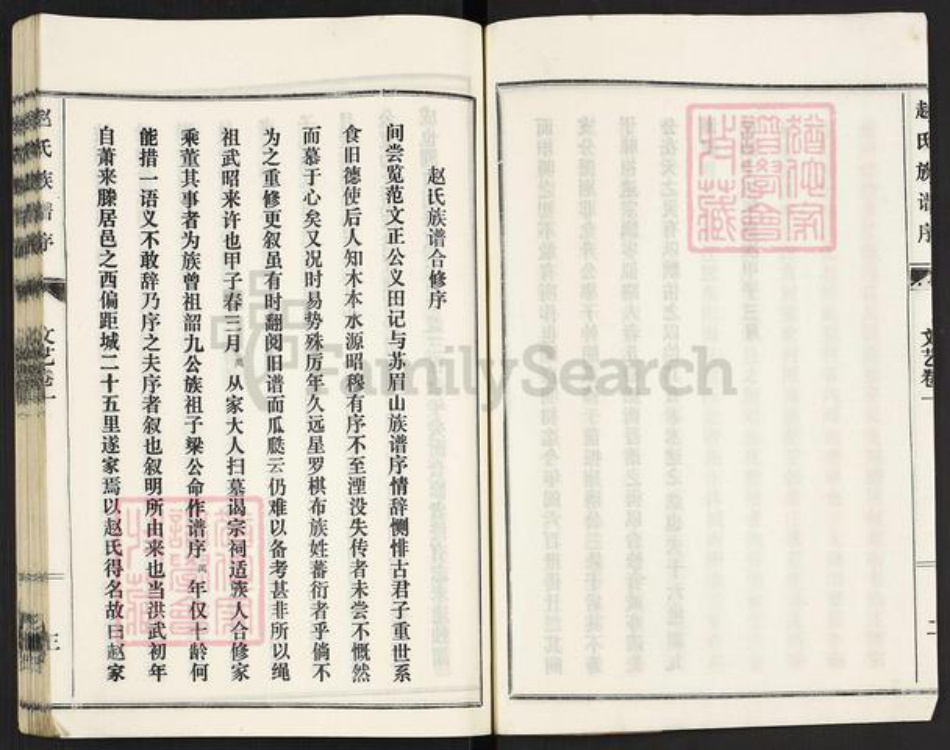 赵氏族谱序
文艺卷一
二
犹他家谱学会收藏
赵氏族谱合修序
间尝览范文正公义田记与苏眉山族谱序情辞恻悱古君子重世系
食旧德使后人知木本水源昭穆有序不至湮没失传者未尝不慨然
而慕于心矣又况时易势殊历年久远星罗棋布族姓蕃衍者乎倘不
为之重修更叙虽有时翻阅旧谱而瓜瓞云仍难以备考甚非所以绳
祖武昭来许也甲子春三月 从家大人扫墓谒宗祠适族人合修家
乘董其事者为族曾祖韶九公族祖子梁公命作谱序 年仅十龄何
能措一语义不敢辞乃序之夫序者叙也叙明所由来也当洪武初年
自萧来滕居邑之西偏距城二十五里遂家焉以赵氏得名故曰赵家
犹他家谱学会收藏
赵氏族谱序
文艺卷一
三
FamilySearch